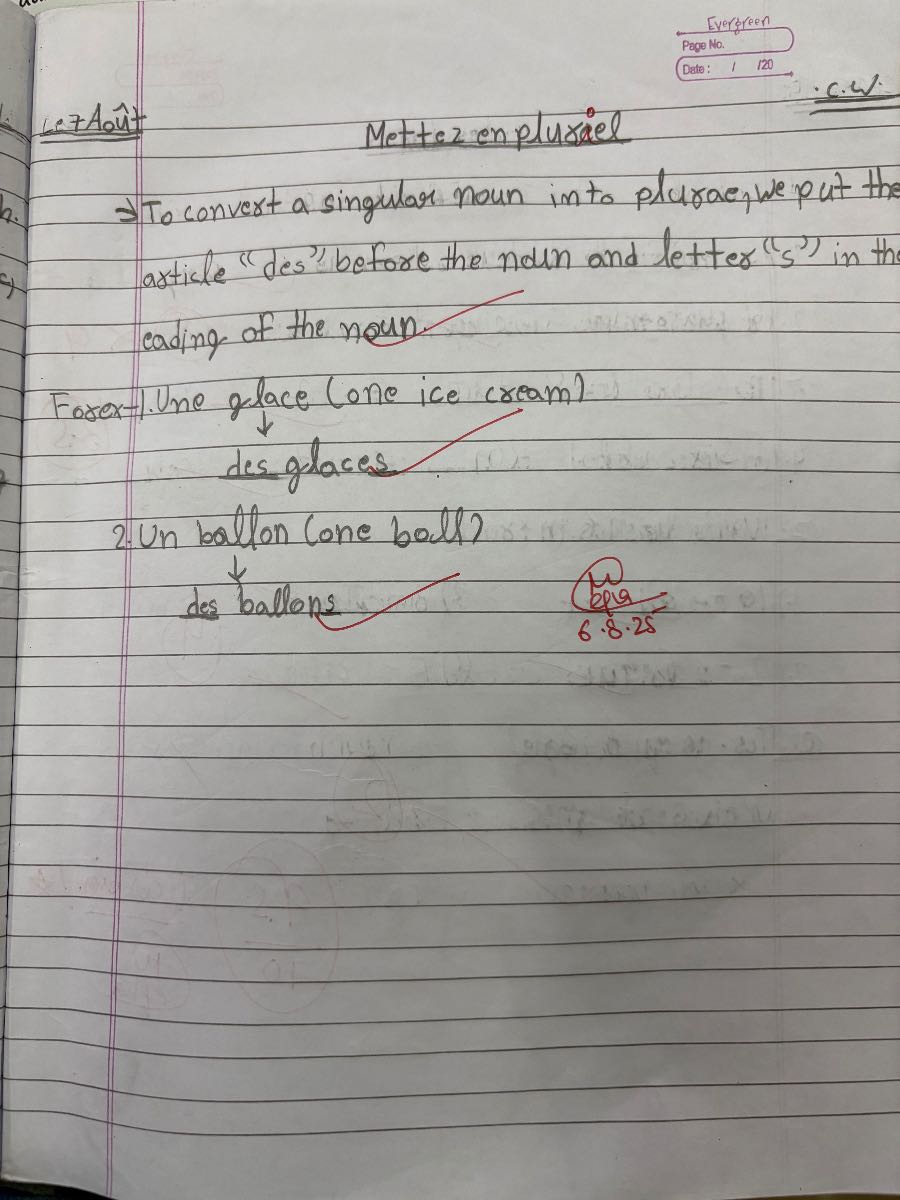 Evergreen
Page No.
Date : / /20
C.W.
Le 7 Août
Mettez en pluriel
⇒ To convert a singular noun into plurae, we put the
article “des” before the noun and letter “s” in the
eading of the noun.
For ex- 1. Une glace (one ice cream)
↓
des glaces
2. Un ballon (one ball)
↓
des ballons
6.8.25